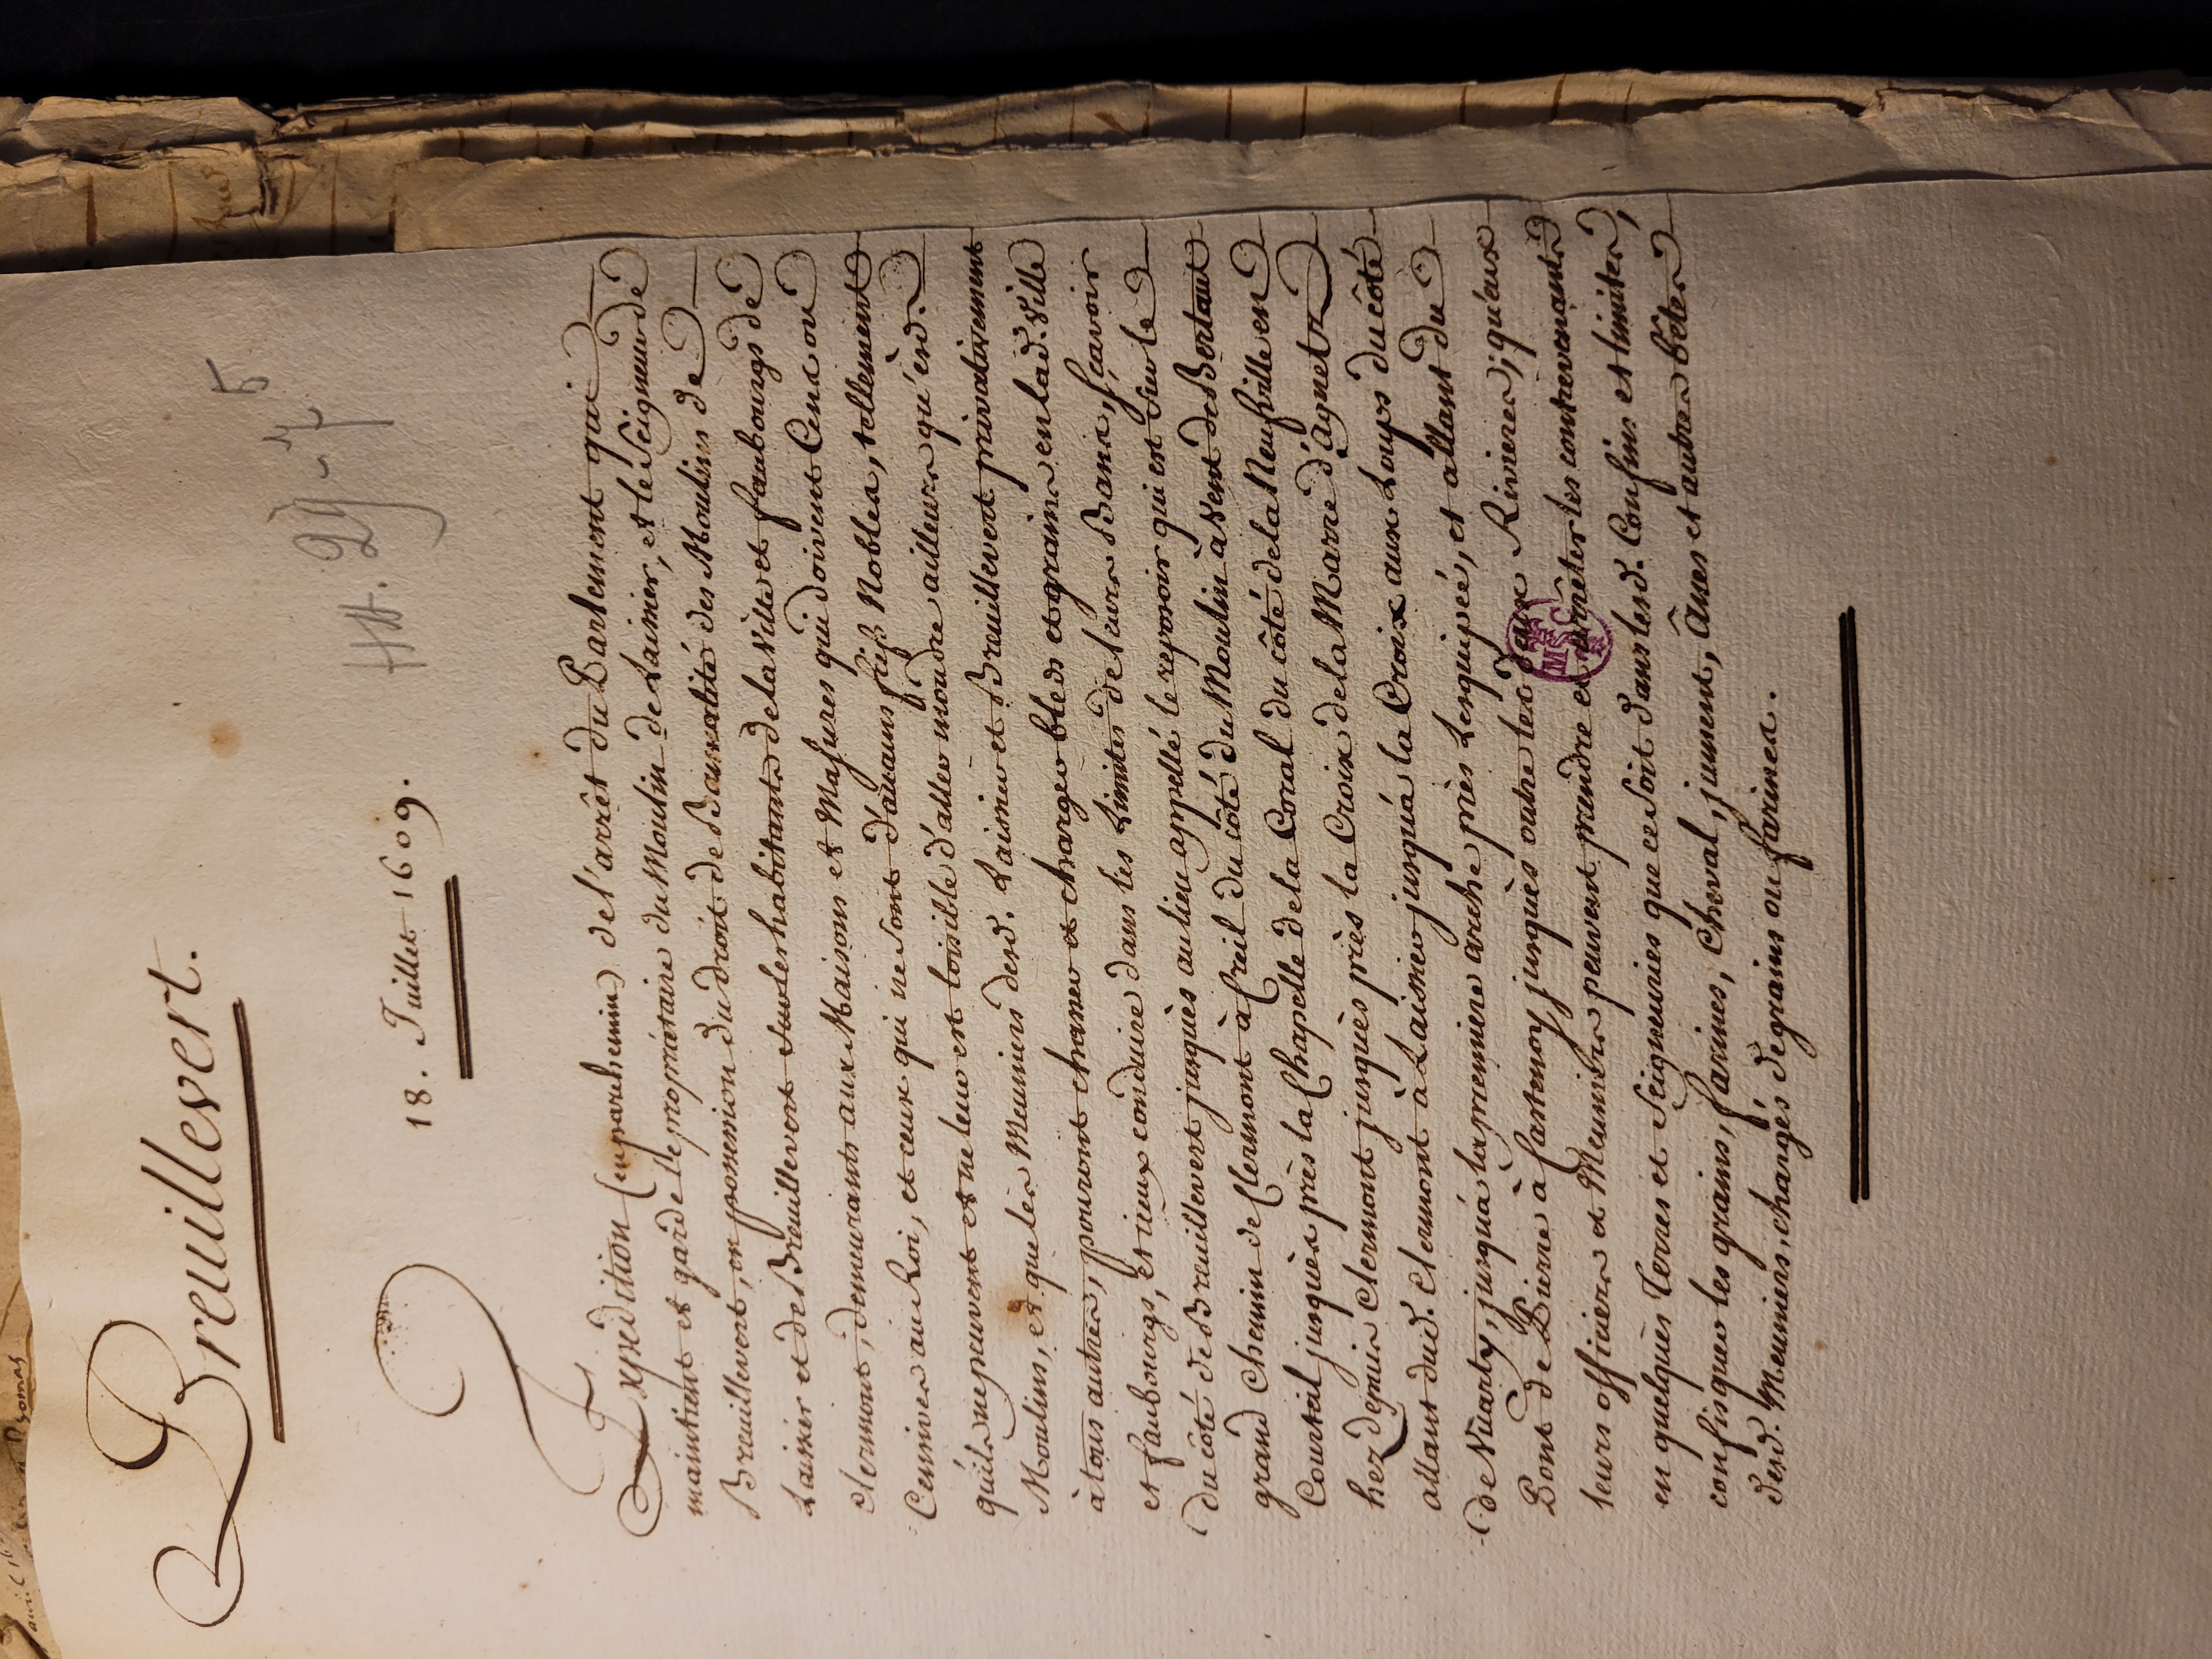 Breuillevert.
HH. 29-7 5
18. Juillet 1609.
Expedition (en parchemin) de l'arrêt du Parlement qui
maintient et garde le proprietaire du Moulin de Lainier, et le Seigneur de
Breuillevert, en possession du droit de Bannalité des Moulins de
Lainier et de Breuillevert sur les habitants de la Ville et faubourgs de
Clermont, demeurants aux Maisons et Masures qui doivent Cens ou
Censives au Roi, et ceux qui ne sont d'aucuns fiefs Nobles, tellement
qu'ils ne peuvent et ne leur est loisible d'aller moudre ailleurs qu'èsd.
Moulins, et que les Meuniers desd. Lainier et Breuillevert privativement
à tous autres, pouront chasser et charger bleds et grains en lad. Ville
et faubourgs, et iceux conduire dans les Limites de leurs Bans, sçavoir
du côté de Breuillevert jusques au lieu appellé le reposoir qui est sur le
grand Chemin de Clermont à Creil du côté du Moulin à Vent de Bertaut
Courteil jusques près la Chapelle de la Coral du côté de la Neufville en
hez depuis Clermont jusques près la Croix de la Marre d'Agnetz
allant dud. Clermont à Lainier jusqu'à la Croix aux Loups du côté
de Nüarty, jusqu'à la premiere arche près Lerquipé, et allant du
Pont de Pierre à Cartenoy jusques outre les deux Rivieres; qu'aux
leurs officiers et Meuniers peuvent prendre et arrêter les contrevenants
en quelques Terres et Seigneuries que ce soit dans lesd. Confins et limites,
confisquer les grains, farines, Cheval, jument, Ânes et autres bêtes
desd. Meuniers, chargés de grains ou farines.